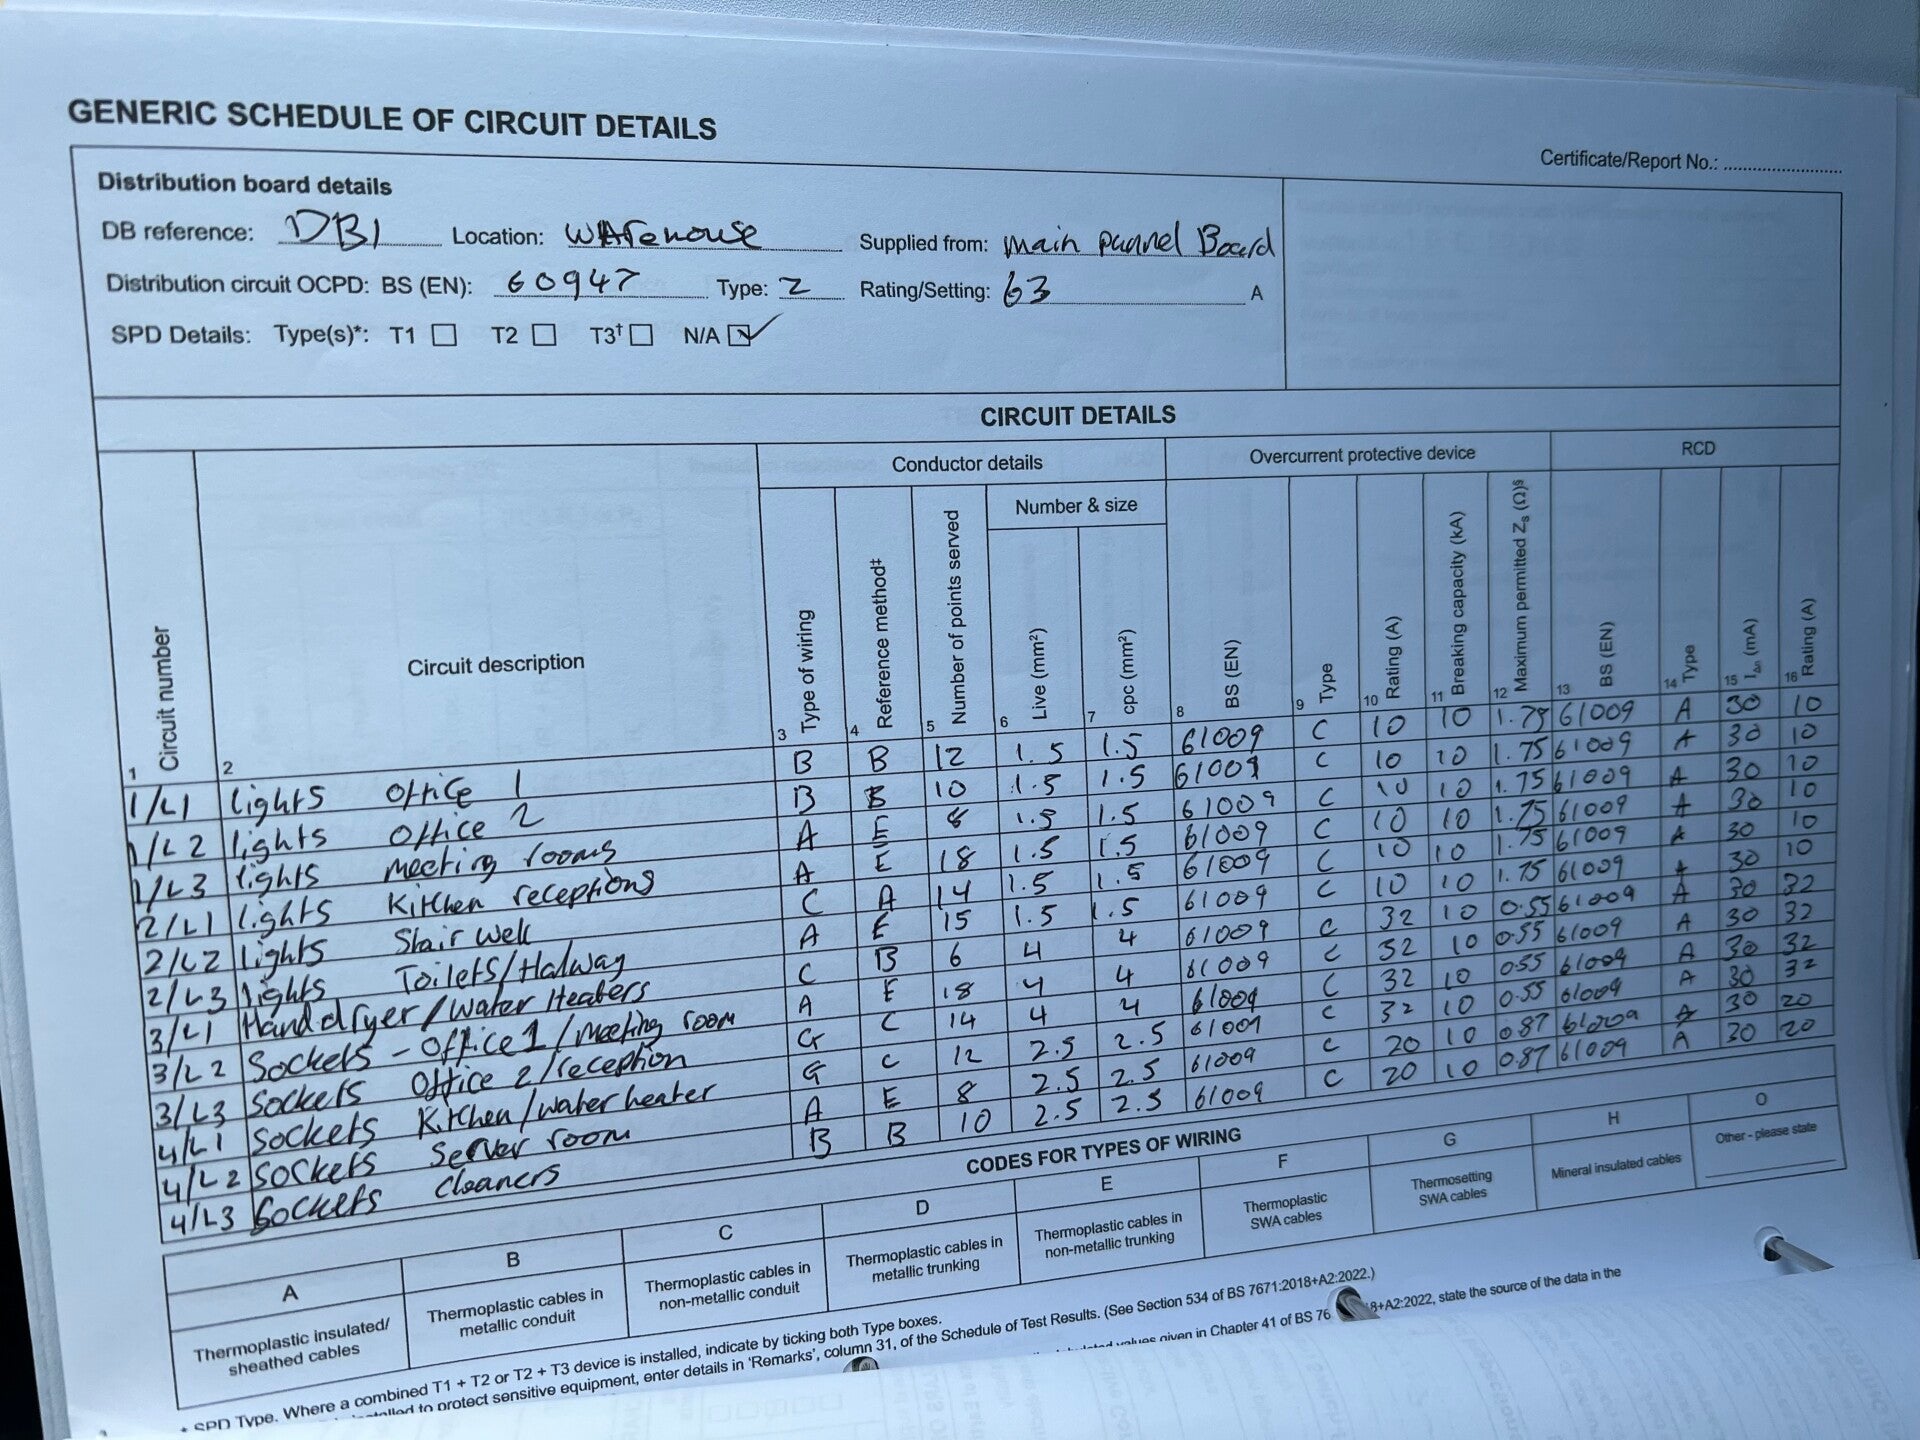 GENERIC SCHEDULE OF CIRCUIT DETAILS
Certificate/Report No.:
Distribution board details
DB reference: DB1 Location: WArehouse Supplied from: main pannel Board
Distribution circuit OCPD: BS (EN): 60947 Type: 2 Rating/Setting: 63 A
SPD Details: Type(s)*: T1 T2 T3† N/A ✓
CIRCUIT DETAILS
Conductor details Overcurrent protective device RCD
Number & size
1 Circuit number 2 Circuit description 3 Type of wiring 4 Reference method‡ 5 Number of points served 6 Live (mm²) 7 cpc (mm²) 8 BS (EN) 9 Type 10 Rating (A) 11 Breaking capacity (kA) 12 Maximum permitted Zs (Ω)§ 13 BS (EN) 14 Type 15 IΔn (mA) 16 Rating (A)
1/L1 lights office 1 B B 12 1.5 1.5 61009 C 10 10 1.75 61009 A 30 10
1/L2 lights office 2 B B 10 1.5 1.5 61009 C 10 10 1.75 61009 A 30 10
1/L3 lights meeting rooms A E 8 1.5 1.5 61009 C 10 10 1.75 61009 A 30 10
2/L1 lights Kitchen receptions A E 18 1.5 1.5 61009 C 10 10 1.75 61009 A 30 10
2/L2 lights Stair well C A 14 1.5 1.5 61009 C 10 10 1.75 61009 A 30 10
2/L3 lights Toilets/Halway A E 15 1.5 1.5 61009 C 10 10 1.75 61009 A 30 10
3/L1 Hand dryer/Water Heaters C B 6 4 4 61009 C 32 10 0.55 61009 A 30 32
3/L2 Sockets - Office 1/meeting room A E 18 4 4 61009 C 32 10 0.55 61009 A 30 32
3/L3 Sockets Office 2/reception G C 14 4 4 61009 C 32 10 0.55 61009 A 30 32
4/L1 Sockets Kitchen/water heater G C 12 2.5 2.5 61009 C 32 10 0.55 61009 A 30 32
4/L2 Sockets Server room A E 8 2.5 2.5 61009 C 20 10 0.87 61009 A 30 20
4/L3 Sockets cleaners B B 10 2.5 2.5 61009 C 20 10 0.87 61009 A 30 20
CODES FOR TYPES OF WIRING
A B C D E F G H O
Thermoplastic insulated/ sheathed cables
Thermoplastic cables in metallic conduit
Thermoplastic cables in non-metallic conduit
Thermoplastic cables in metallic trunking
Thermoplastic cables in non-metallic trunking
Thermoplastic SWA cables
Thermosetting SWA cables
Mineral insulated cables
Other - please state
* SPD Type. Where a combined T1 + T2 or T2 + T3 device is installed, indicate by ticking both Type boxes.
to protect sensitive equipment, enter details in 'Remarks', column 31, of the Schedule of Test Results. (See Section 534 of BS 7671:2018+A2:2022.)
values given in Chapter 41 of BS 76 8+A2:2022, state the source of the data in the